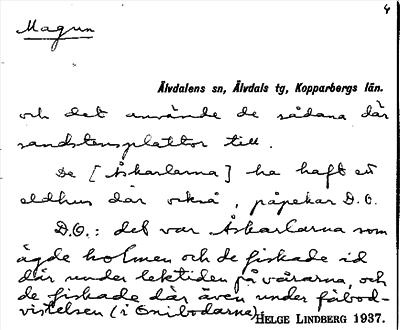 4
Magun
Älvdalens sn, Älvdals tg, Kopparbergs län.
och det använde de sådana där
sandstensplattor till.
De [Åskarlarna] ha haft ett
eldhus där också, påpekar D.O.
D.O.: det var Åskarlarna som
ägde holmen och de fiskade id
där under lektiden på vårarna, och
de fiskade där även under fäbod-
vistelsen (i Gnibodarna).
HELGE LINDBERG 1937.